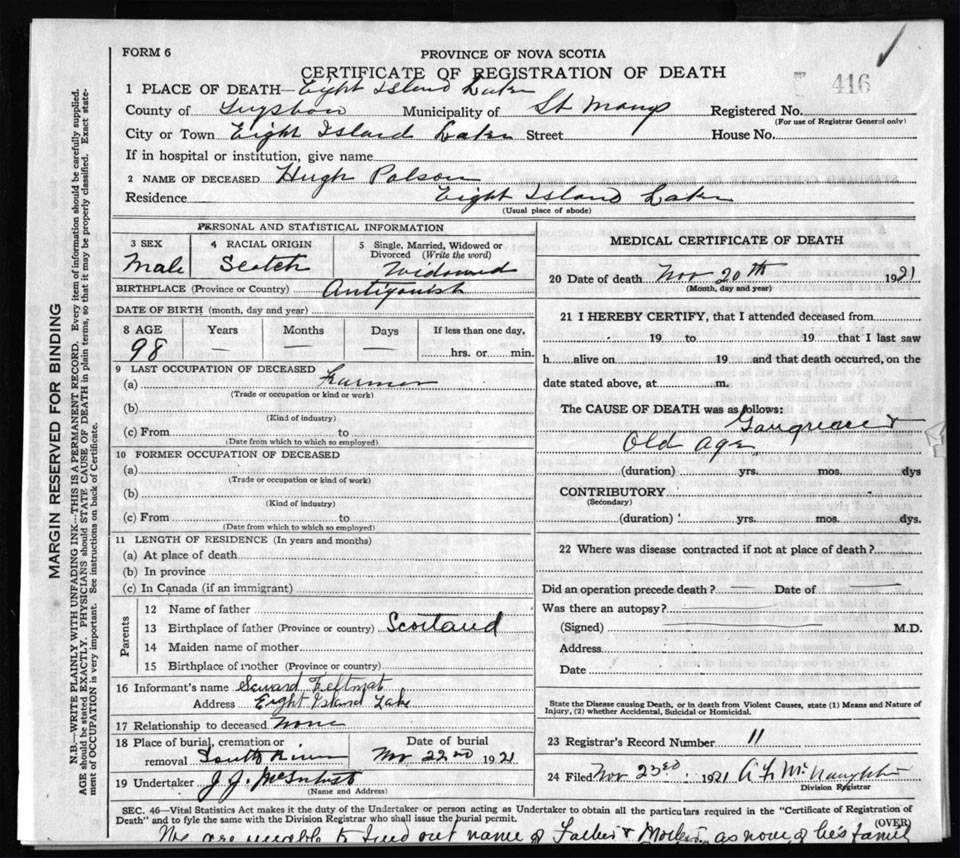 FORM 6
PROVINCE OF NOVA SCOTIA
CERTIFICATE OF REGISTRATION OF DEATH
416
1 PLACE OF DEATH— Eight Island Lake
County of Guysboro Municipality of St Marys Registered No.
(For use of Registrar General only)
City or Town Eight Island Lake Street House No.
If in hospital or institution, give name
2 NAME OF DECEASED Hugh Polson
Residence Eight Island Lake
(Usual place of abode)
PERSONAL AND STATISTICAL INFORMATION
3 SEX Male
4 RACIAL ORIGIN Scotch
5 Single, Married, Widowed or Divorced (Write the word) Widowed
BIRTHPLACE (Province or Country) Antigonish
DATE OF BIRTH (month, day and year)
8 AGE Years Months Days If less than one day,
98 — — — hrs. or min.
9 LAST OCCUPATION OF DECEASED
(a) Farmer
(Trade or occupation or kind or work)
(b)
(Kind of industry)
(c) From to
(Date from which to which so employed)
10 FORMER OCCUPATION OF DECEASED
(a)
(Trade or occupation or kind of work)
(b)
(Kind of industry)
(c) From to
(Date from which to which so employed)
11 LENGTH OF RESIDENCE (In years and months)
(a) At place of death
(b) In province
(c) In Canada (if an immigrant)
Parents
12 Name of father
13 Birthplace of father (Province or country) Scotland
14 Maiden name of mother
15 Birthplace of mother (Province or country)
16 Informant's name Feltmat
Address Eight Island Lake
17 Relationship to deceased None
18 Place of burial, cremation or removal South River
Date of burial Nov 22nd 1921
19 Undertaker J. J. McIntosh
(Name and Address)
MEDICAL CERTIFICATE OF DEATH
20 Date of death Nov 20th 1921
(Month, day and year)
21 I HEREBY CERTIFY, that I attended deceased from
19 to 19 that I last saw
h alive on 19 and that death occurred, on the
date stated above, at m.
The CAUSE OF DEATH was as follows:
Gangrene &
Old Age
(duration) yrs. mos. dys
CONTRIBUTORY
(Secondary)
(duration) yrs. mos. dys.
22 Where was disease contracted if not at place of death?
Did an operation precede death? — Date of
Was there an autopsy?
(Signed) M.D.
Address
Date
State the Disease causing Death, or in death from Violent Causes, state (1) Means and Nature of
Injury, (2) whether Accidental, Suicidal or Homicidal.
23 Registrar's Record Number 11
24 Filed Nov 23rd 1921 McNaughton
Division Registrar
SEC. 46—Vital Statistics Act makes it the duty of the Undertaker or person acting as Undertaker to obtain all the particulars required in the "Certificate of Registration of
Death" and to fyle the same with the Division Registrar who shall issue the burial permit.
(OVER)
We are unable to find out name of Father & Mother as none of his family
MARGIN RESERVED FOR BINDING
N.B.—WRITE PLAINLY WITH UNFADING INK—THIS IS A PERMANENT RECORD. Every item of information should be carefully supplied.
AGE should be stated EXACTLY. PHYSICIANS should STATE CAUSE OF DEATH in plain terms, so that it may be properly classified. Exact state-
ment of OCCUPATION is very important. See instructions on back of Certificate.